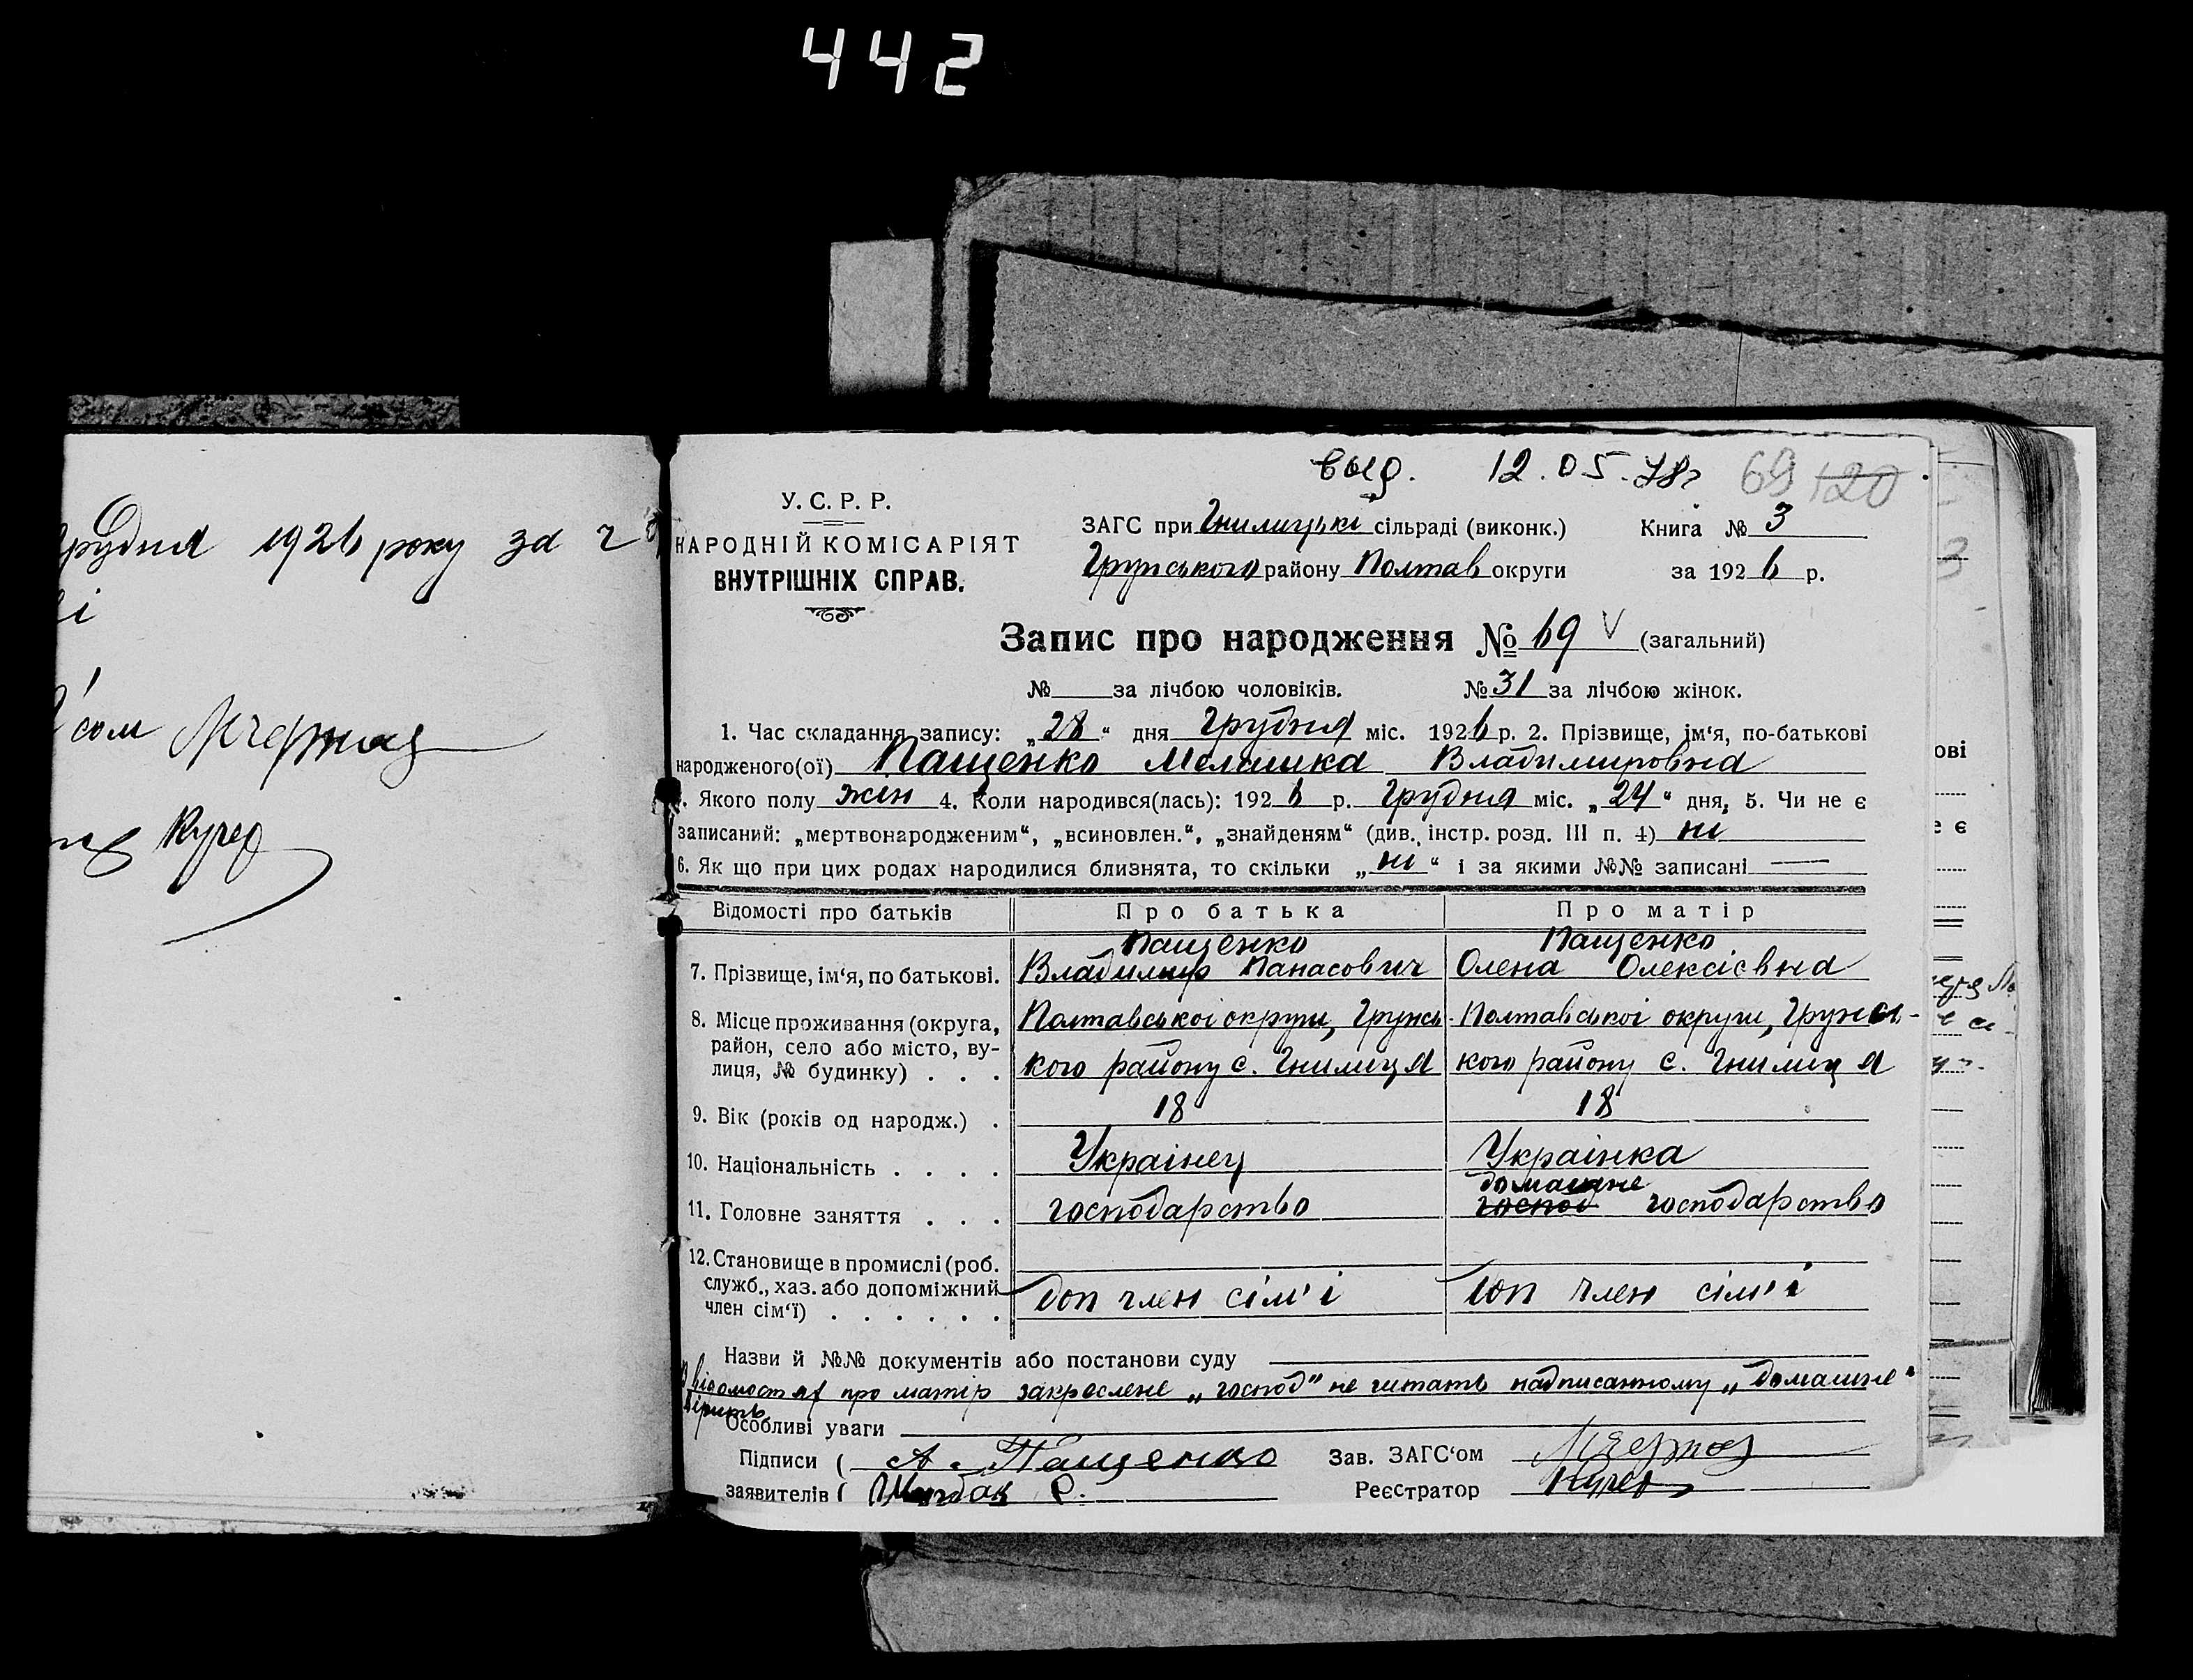 442
грудня 1926 року за ч
і
сом
Кучер
выд. 12.05.78г 69 120
У.С.Р.Р.
НАРОДНІЙ КОМІСАРІЯТ
ВНУТРІШНІХ СПРАВ.
ЗАГС при Гнилицькі сільраді (виконк.) Книга № 3
Грунського району Полтав округи за 1926 р.
Запис про народження № 69 V (загальний)
№ за лічбою чоловіків. № 31 за лічбою жінок.
1. Час складання запису: „28“ дня Грудня міс. 1926 р. 2. Прізвище, ім‘я, по-батькові
народженого(ої) Пащенко Мелашка Владимировна
. Якого полу жін 4. Коли народився(лась): 1926 р. Грудня міс. „24“ дня, 5. Чи не є
записаний: „мертвонародженим“, „всиновлен.“, „знайденям“ (див. інстр. розд. III п. 4) ні
6. Як що при цих родах народилися близнята, то скільки „ні“ і за якими №№ записані —
Відомості про батьків Про батька Про матір
Пащенко Пащенко
7. Прізвище, ім‘я, по батькові. Владимир Панасович Олена Олексієвна
8. Місце проживання (округа, Полтавськоі округи, Грунсь- Полтавськоі округи, Грунсь-
район, село або місто, ву-
лиця, № будинку) . . . кого району с. Гнилиця кого району с. Гнилиця
9. Вік (років од народж.) . 18 18
10. Національність . . . . Украінец Украінка
домашне
11. Головне заняття . . . господарство господ господарство
12. Становище в промислі (роб.
служб., хаз. або допоміжний доп член сім'і доп член сім'і
член сім‘ї) . . . . . .
Назви й №№ документів або постанови суду
В відомостях про матір закреслене „господ" не читать надписанному „домашне"
вірить
Особливі уваги
Підписи ( А. Пащенко Зав. ЗАГС‘ом
заявителів ( Реєстратор Кучер
ові
е є